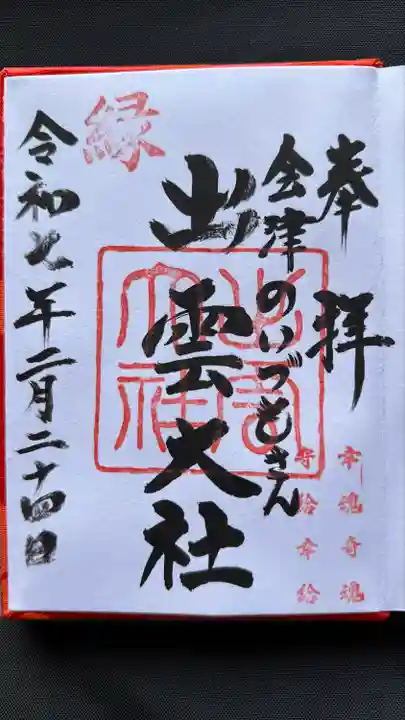 奉拝
幸魂奇魂
守給幸給
会津のいづもさん
出雲大社
出雲大社
縁
令和七年二月二十四日